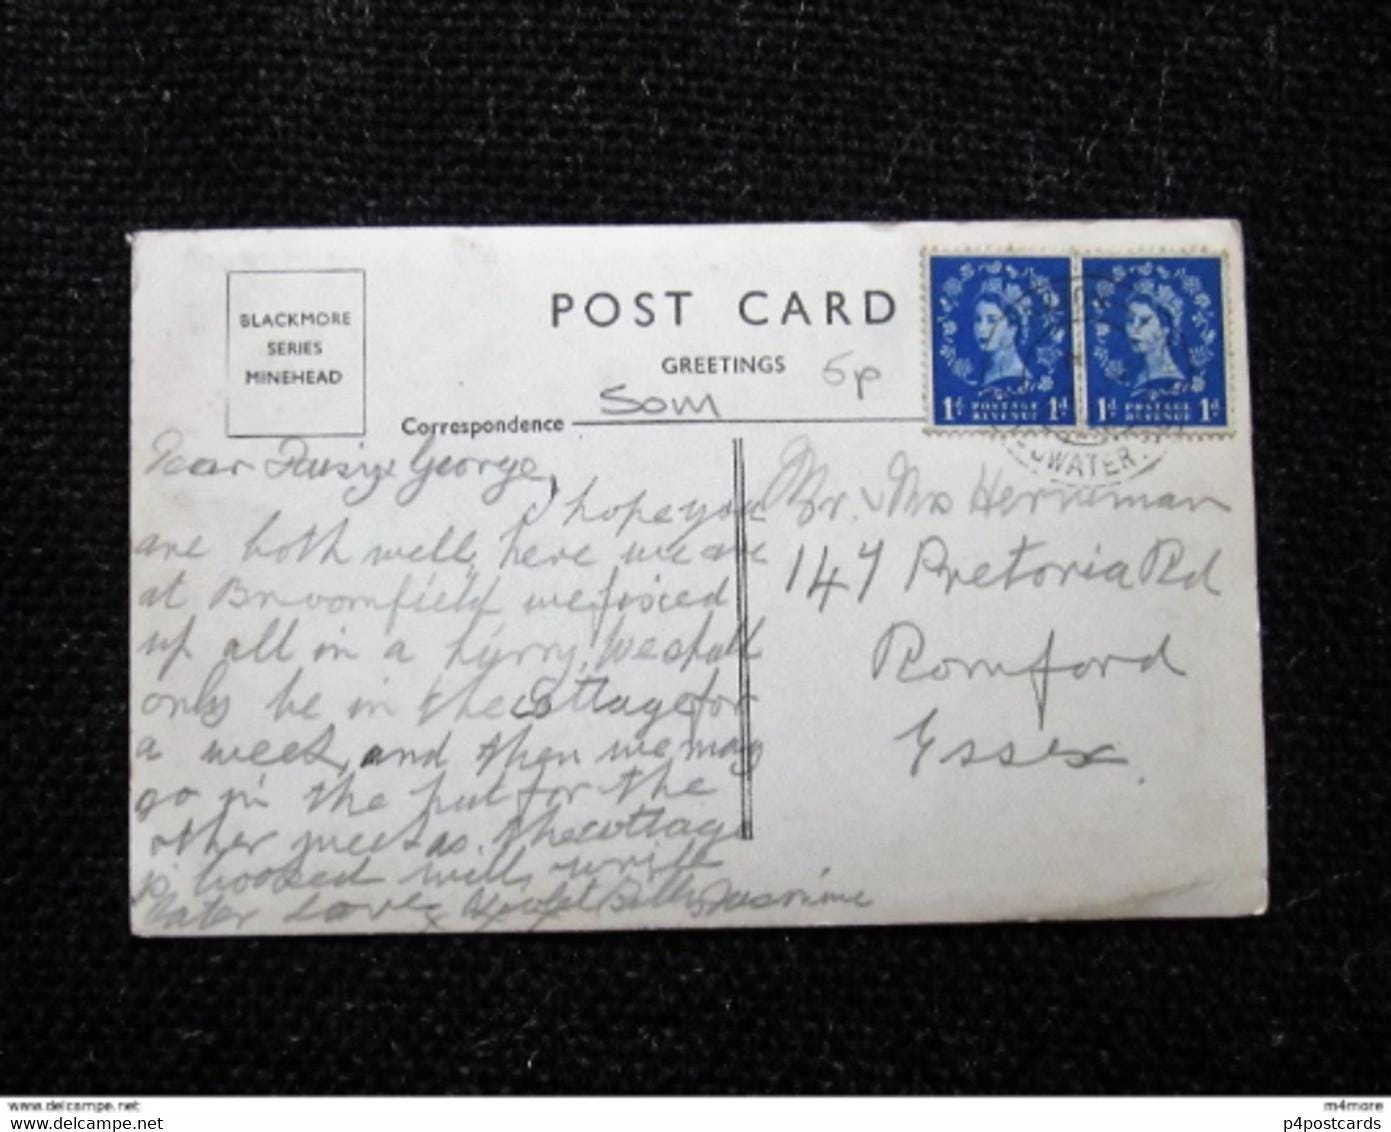 BLACKMORE
SERIES
MINEHEAD
POST CARD
GREETINGS
5p
Som
Correspondence
1d POSTAGE REVENUE 1d
1d POSTAGE REVENUE 1d
WATER
Dear Daisy & George,
I hope you
are both well, here we are
at Broomfield we fixed
up all in a hurry, We shall
only be in the Cottage for
a week, and then we may
go in the hut for the
other week as the cottage
is booked will write
later Love Violet Billy Jasmine
x x x
Mr. & Mrs Herneman
147 Pretoria Rd
Romford
Essex.
www.delcampe.net
m4more
www.delcampe.net
p4postcards